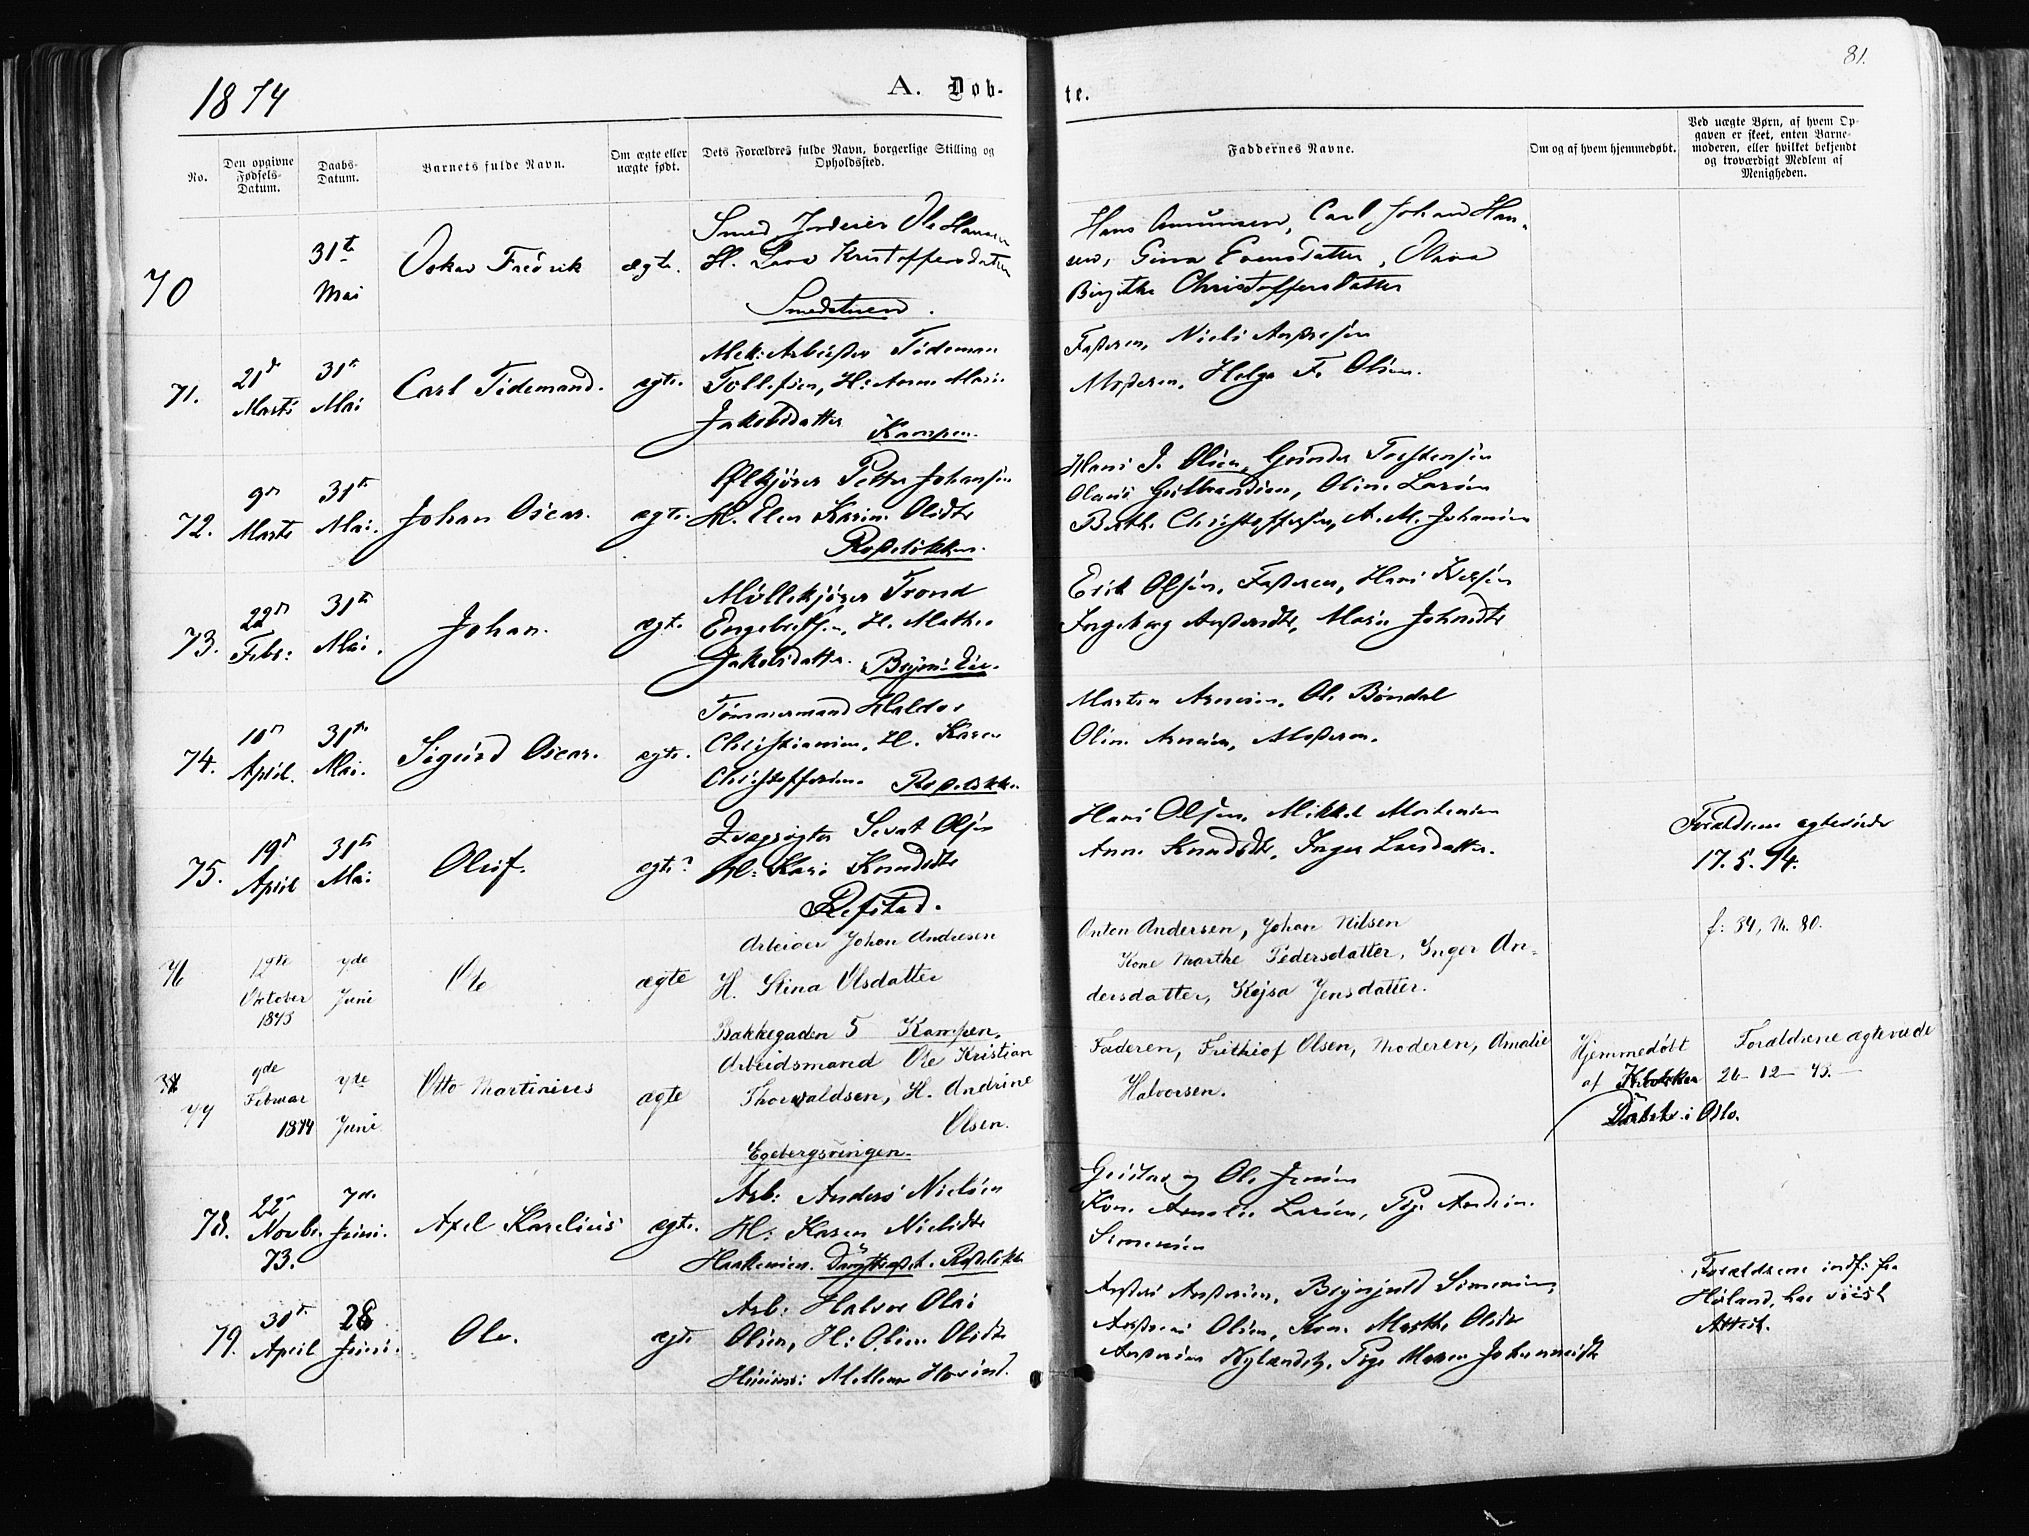 1874
A. Døb-
te.
81.
No.
Den opgivne
Fødsels-
Datum.
Daabs-
Datum.
Barnets fulde Navn.
Om ægte eller
uægte født.
Dets Forældres fulde Navn, borgerlige Stilling og
Opholdssted.
Faddernes Navne.
Om og af hvem hjemmedøbt.
Ved uægte Børn, af hvem Op-
gaven er skeet, enten Barne-
moderen, eller hvilket bekjendt
og troværdigt Medlem af
Menigheden.
70
31te
Mai
Oskar Fredrik
ægte.
Smed Ole Hansen
H. Kristoffersdatter
Smedstuen.
Hans Amundsen, Carl Johan Han-
sen, Gina Evensdatter, Olava
Birgithe Christoffersdatter
71.
21de
Marts
31te
Mai
Carl Tidemand.
ægte.
Mek: Arbeider Tideman
Tollefsen, H: Anne Marie
Jakobsdatter Kampen.
Faderen, Niels Andresen
Moderen, Helga F. Olsen.
72.
9de
Marts
31te
Mai.
Johan Oscar.
ægte.
Ølkjører Petter Johansen
H. Elen Karine Olsdtr
Rodeløkken.
Hans J. Olsen, Torstensen
Olaus Gulbrandsen, Oline Larsen
Berthe Christoffersen, A. M. Johansen
73.
22de
Febr:
31te
Mai.
Johan.
ægte.
Møllekjører Trond
Engebretsen, H. Mathea
Jakobsdatter.
Erik Olsen, Faderen, Hans
Ingeborg Andersdtr, Marie Johnsdtr
74.
10de
April.
31te
Mai.
Sigurd Oscar.
ægte.
Tømmermand Haldor
Christiansen, H. Karen
Christoffersen. Rodeløkken
Martin Arnesen, Ole Bøndal
Oline Arnesen, Moderen.
75.
19de
April
31te
Mai
Oluf.
ægte?
Sevat Olsen
H: Kari Knudsdtr
Refstad.
Hans Olsen, Mikkel Mortensen
Anne Knudsdtr, Inger Larsdatter.
Forældrene ægteviede
17. 5. 74.
76
12te
Oktober
1873
7de
Juni
Ole
ægte
Arbeider Johan Andresen
H. Stina Olsdatter
Bakkegaden 5 Kampen.
Anton Andersen, Johan Nilsen
Kone Marthe Pedersdatter, Inger An-
dersdatter, Kajsa Jensdatter.
f: 84, N. 80.
77
9de
Februar
1874
7de
Juni
Otto Martinius
ægte
Arbeidsmand Ole Kristian
Thorvaldsen, H. Andrine
Olsen.
Egebergsvingen.
Faderen, Frithiof Olsen, Moderen, Amalie
Halvorsen.
Hjemmedøbt
af
i Oslo.
Forældrene ægteviede
26 - 12 - 73.
78.
22de
Novbr.
73.
7de
Juni.
Axel Karelius
ægte.
Arb: Anders Nielsen
H: Karen Nielsdtr
Haakensen. Rodeløkken
Gustav og Ole Jensen
Kone Amalie Larsen, Pige
Simensen
79.
30te
April
28
Juni.
Ole.
ægte
Arb: Halvor Olai
Olsen, H: Oline Olsdtr
Mellem Hovind.
Anders Andersen, Simensen,
Andreas Olsen, Kone Marthe Olsdtr
Nylandet, Pige Maren Johannesdtr
Forældrene indf: fra
Høland, har viist
Attest.